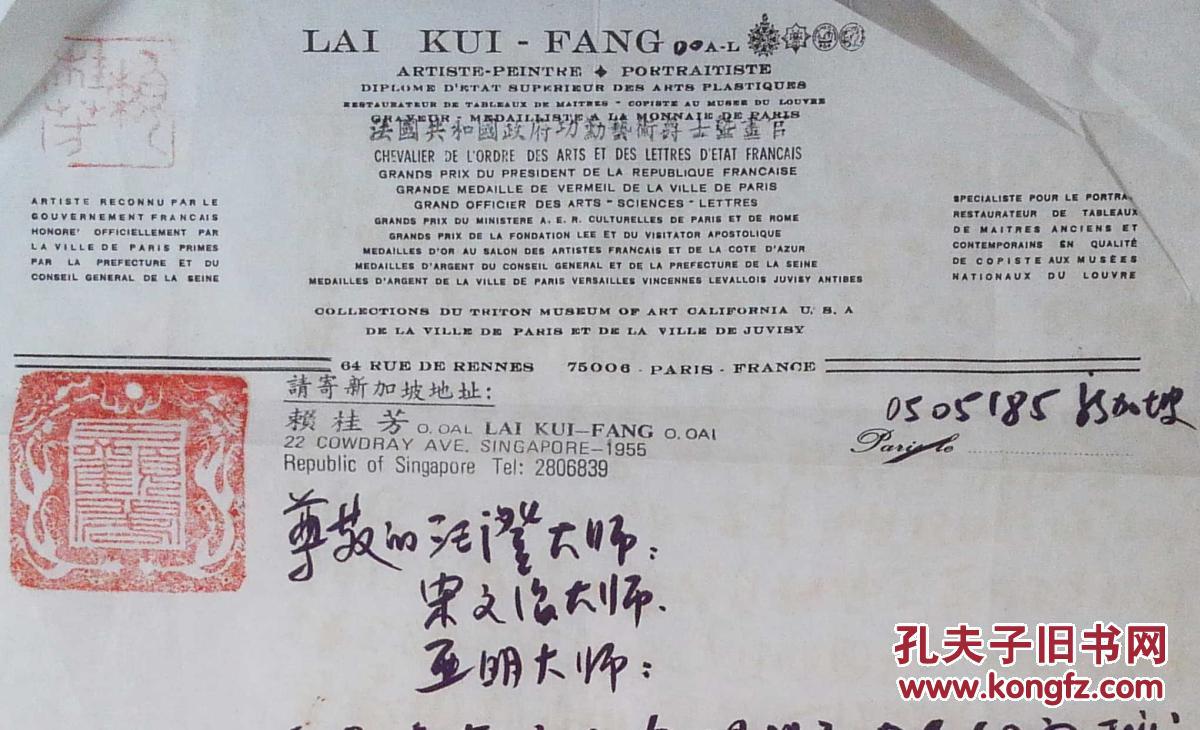 賴桂芳
LAI KUI - FANG OOA-L
ARTISTE-PEINTRE ✦ PORTRAITISTE
DIPLOME D'ETAT SUPERIEUR DES ARTS PLASTIQUES
RESTAURATEUR DE TABLEAUX DE MAITRES - COPISTE AU MUSEE DU LOUVRE
GRAVEUR - MEDAILLISTE A LA MONNAIE DE PARIS
法國共和國政府功勳藝術爵士
CHEVALIER DE L'ORDRE DES ARTS ET DES LETTRES D'ETAT FRANCAIS
GRANDS PRIX DU PRESIDENT DE LA REPUBLIQUE FRANCAISE
GRANDE MEDAILLE DE VERMEIL DE LA VILLE DE PARIS
GRAND OFFICIER DES ARTS - SCIENCES - LETTRES
GRANDS PRIX DU MINISTERE A. E. R. CULTURELLES DE PARIS ET DE ROME
GRANDS PRIX DE LA FONDATION LEE ET DU VISITATOR APOSTOLIQUE
MEDAILLES D'OR AU SALON DES ARTISTES FRANCAIS ET DE LA COTE D'AZUR
MEDAILLES D'ARGENT DU CONSEIL GENERAL ET DE LA PREFECTURE DE LA SEINE
MEDAILLES D'ARGENT DE LA VILLE DE PARIS VERSAILLES VINCENNES LEVALLOIS JUVISY ANTIBES
COLLECTIONS DU TRITON MUSEUM OF ART CALIFORNIA U. S. A
DE LA VILLE DE PARIS ET DE LA VILLE DE JUVISY
ARTISTE RECONNU PAR LE
GOUVERNEMENT FRANCAIS
HONORE' OFFICIELLEMENT PAR
LA VILLE DE PARIS PRIMES
PAR LA PREFECTURE ET DU
CONSEIL GENERAL DE LA SEINE
SPECIALISTE POUR LE PORTRA
RESTAURATEUR DE TABLEAUX
DE MAITRES ANCIENS ET
CONTEMPORAINS EN QUALITÉ
DE COPISTE AUX MUSÉES
NATIONAUX DU LOUVRE
64 RUE DE RENNES 75006 - PARIS - FRANCE
請寄新加坡地址:
賴桂芳 O.OAL LAI KUI-FANG O.OAl
22 COWDRAY AVE. SINGAPORE-1955
Republic of Singapore Tel: 2806839
050585 新加坡
Paris le
尊敬的汪澄大师:
宋文治大师.
亚明大师:
孔夫子旧书网
www.kongfz.com